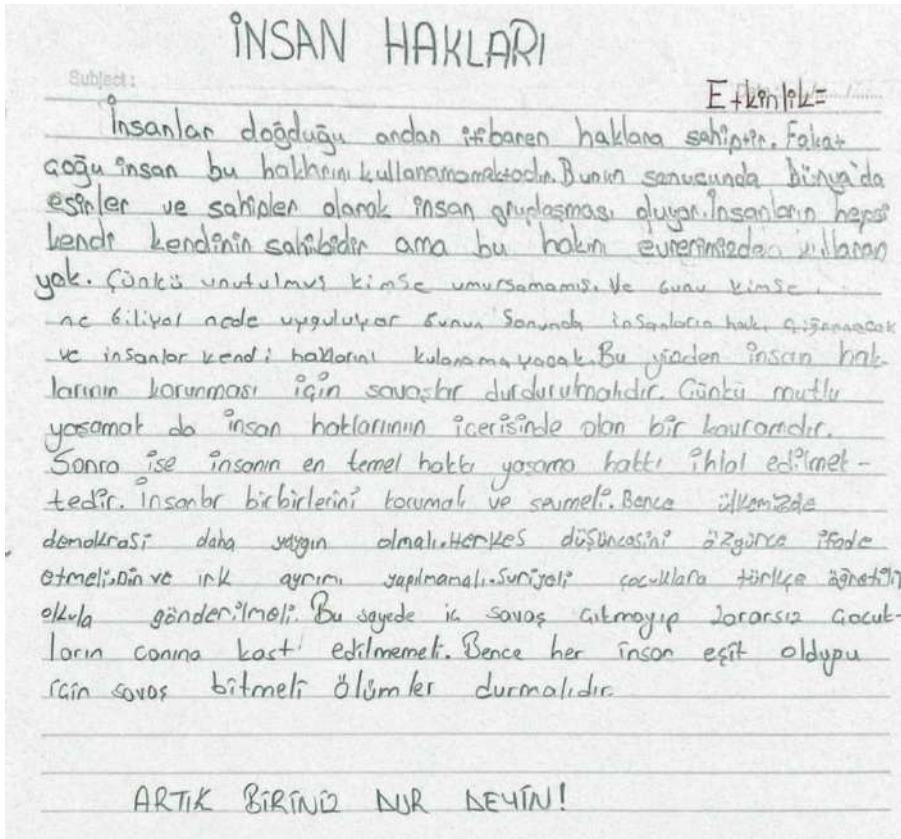 İNSAN HAKLARI
Subject:
Etkinlik=
İnsanlar doğduğu andan itibaren haklara sahiptir. Fakat
çoğu insan bu haklarını kullanamamaktadır. Bunun sonucunda Dünya'da
esirler ve sahipler olarak insan gruplaşması oluyor. İnsanların hepsi
kendi kendinin sahibidir ama bu hakın evrerimizden kullanan
yok. Çünkü unutulmuş kimse umursamamış. Ve bunu kimse
ne biliyol nede uyguluyor bunun sonunda insanların hakı çiğnenecek
ve insanlar kendi haklarını kulanamayacak. Bu yüzden insan hak-
larının korunması için savaşlar durdurulmalıdır. Çünkü mutlu
yaşamak da insan haklarınıın içerisinde olan bir kavramdır.
Sonra ise insanın en temel hakkı yaşama hakkı ihlal edilmek-
tedir. İnsanlar birbirlerini korumalı ve sevmeli. Bence ülkemizde
demokrasi daha yaygın olmalı. Herkes düşüncesini özgürce ifade
etmeli. Din ve ırk ayrımı yapılmamalı. Suriyeli çocuklara türkçe öğretilip
okula gönderilmeli. Bu sayede iç savaş çıkmayıp zararsız çocuk-
ların canına kast edilmemeli. Bence her insan eşit olduğu
için savaş bitmeli ölümler durmalıdır.
ARTIK BİRİNİZ DUR DEYİN!